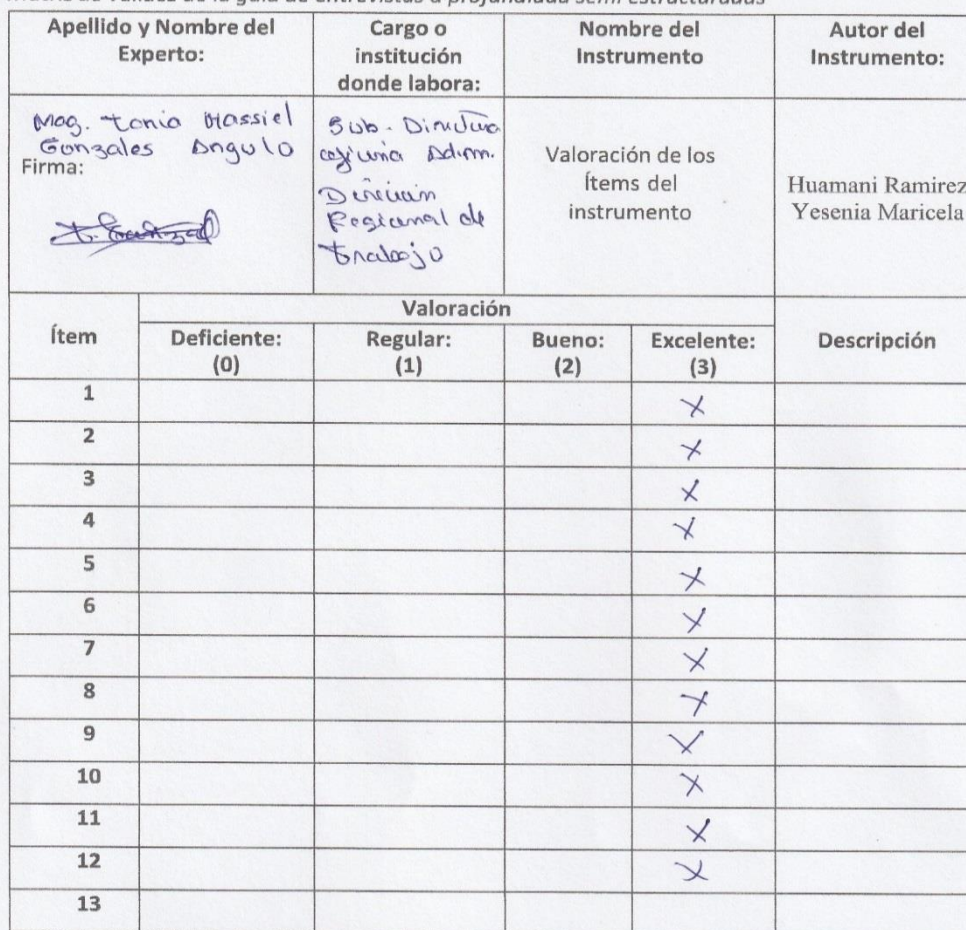 Matriz de validez de la guía de entrevistas a profundidad semi estructuradas
Apellido y Nombre del
Experto:
Cargo o
institución
donde labora:
Nombre del
Instrumento
Autor del
Instrumento:
Mag. Tania Massiel
Gonzales Angulo
Firma:
Sub. Directora
oficina Adm.
Dirección
Regional de
Trabajo
Valoración de los
Ítems del
instrumento
Huamani Ramirez
Yesenia Maricela
Ítem
Valoración
Descripción
Deficiente:
(0)
Regular:
(1)
Bueno:
(2)
Excelente:
(3)
1 X
2 X
3 X
4 X
5 X
6 X
7 X
8 X
9 X
10 X
11 X
12 X
13